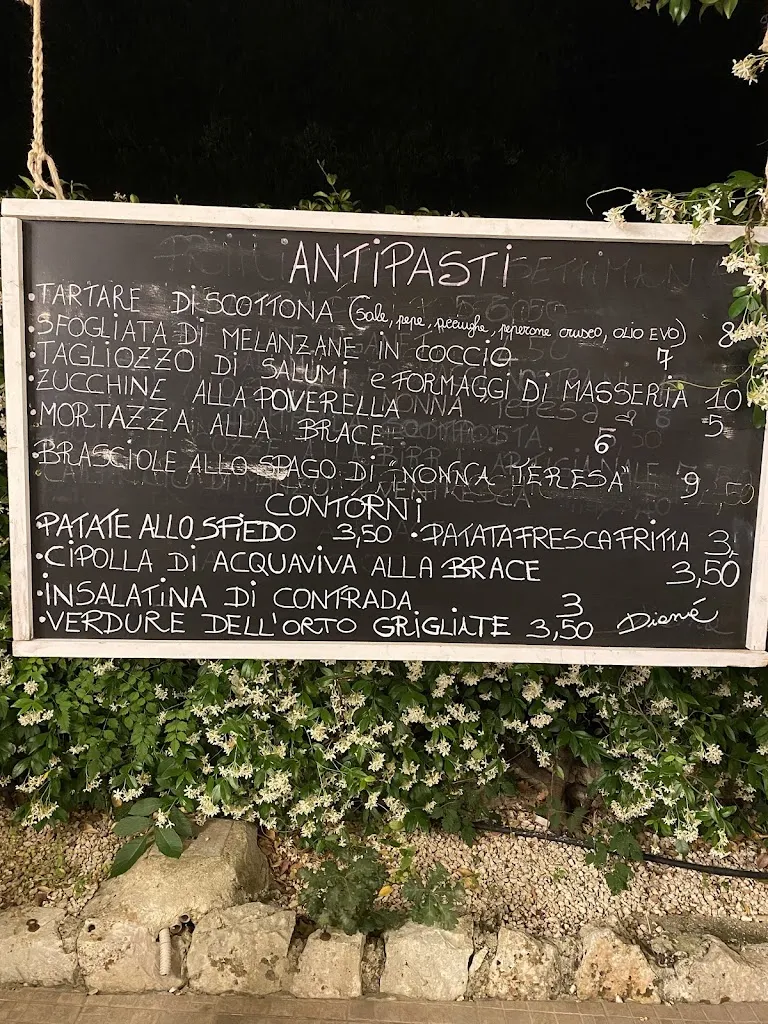 ANTIPASTI
•TARTARE DI SCOTTONA (Sale, pepe, peperone crusco, OLIO EVO) 8
•SFOGLIATA DI MELANZANE IN COCCIO 7
•TAGLIOZZO DI SALUMI e FORMAGGI DI MASSERIA 10
•ZUCCHINE ALLA POVERELLA 5
•MORTAZZA ALLA BRACE 6
•BRASCIOLE ALLO SPAGO DI "NONNA TERESA" 9
CONTORNI
•PATATE ALLO SPIEDO 3,50 •PATATA FRESCA FRITTA 3,
•CIPOLLA DI ACQUAVIVA ALLA BRACE 3,50
•INSALATINA DI CONTRADA 3
•VERDURE DELL'ORTO GRIGLIATE 3,50